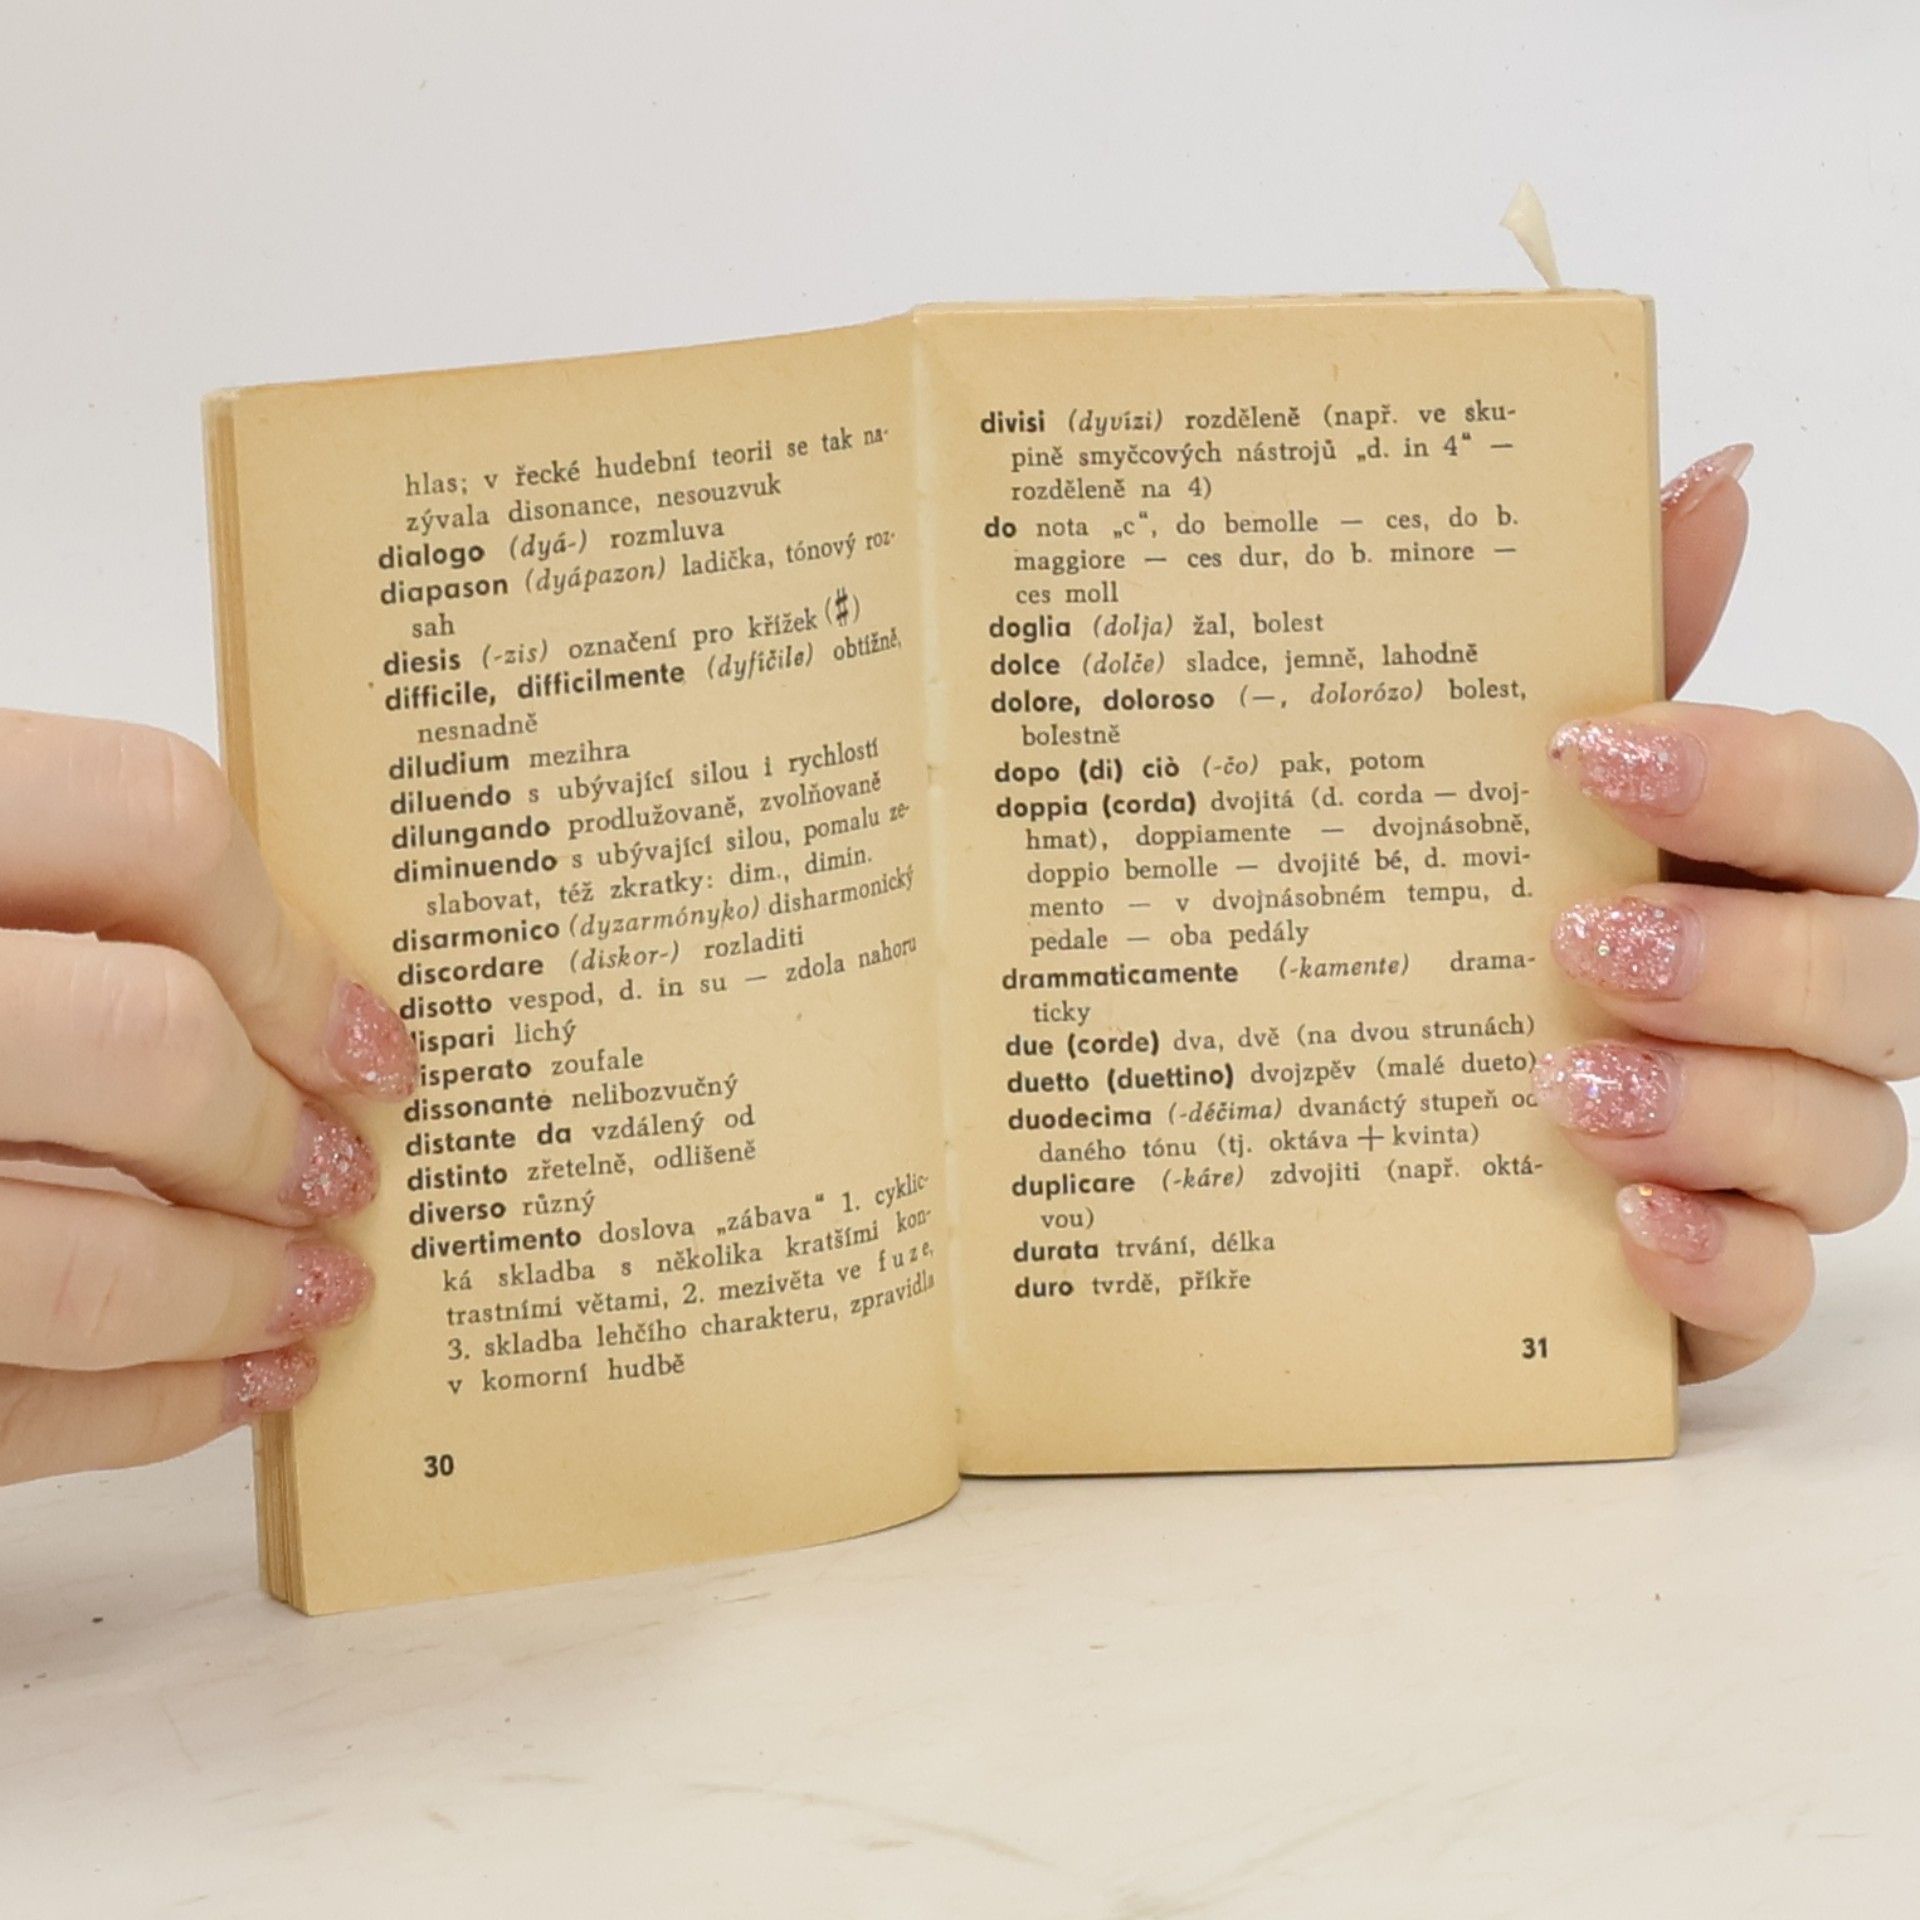 hlas; v řecké hudební teorii se tak na-
zývala disonance, nesouzvuk
dialogo (dyá-) rozmluva
diapason (dyápazon) ladička, tónový roz-
sah
diesis (-zis) označení pro křížek (♯)
difficile, difficilmente (dyfíčile) obtížně,
nesnadně
diludium mezihra
diluendo s ubývající silou i rychlostí
dilungando prodlužovaně, zvolňovaně
diminuendo s ubývající silou, pomalu ze-
slabovat, též zkratky: dim., dimin.
disarmonico (dyzarmónyko) disharmonický
discordare (diskor-) rozladiti
disotto vespod, d. in su — zdola nahoru
dispari lichý
isperato zoufale
dissonante nelibozvučný
distante da vzdálený od
distinto zřetelně, odlišeně
diverso různý
divertimento doslova „zábava“ 1. cyklic-
ká skladba s několika kratšími kon-
trastními větami, 2. mezivěta ve fuze,
3. skladba lehčího charakteru, zpravidla
v komorní hudbě
30
divisi (dyvízi) rozděleně (např. ve sku-
pině smyčcových nástrojů „d. in 4“ —
rozděleně na 4)
do nota „c“, do bemolle — ces, do b.
maggiore — ces dur, do b. minore —
ces moll
doglia (dolja) žal, bolest
dolce (dolče) sladce, jemně, lahodně
dolore, doloroso (—, dolorózo) bolest,
bolestně
dopo (di) ciò (-čo) pak, potom
doppia (corda) dvojitá (d. corda — dvoj-
hmat), doppiamente — dvojnásobně,
doppio bemolle — dvojité bé, d. movi-
mento — v dvojnásobném tempu, d.
pedale — oba pedály
drammaticamente (-kamente) drama-
ticky
due (corde) dva, dvě (na dvou strunách)
duetto (duettino) dvojzpěv (malé dueto)
duodecima (-déčima) dvanáctý stupeň od
daného tónu (tj. oktáva + kvinta)
duplicare (-káre) zdvojiti (např. oktá-
vou)
durata trvání, délka
duro tvrdě, příkře
31